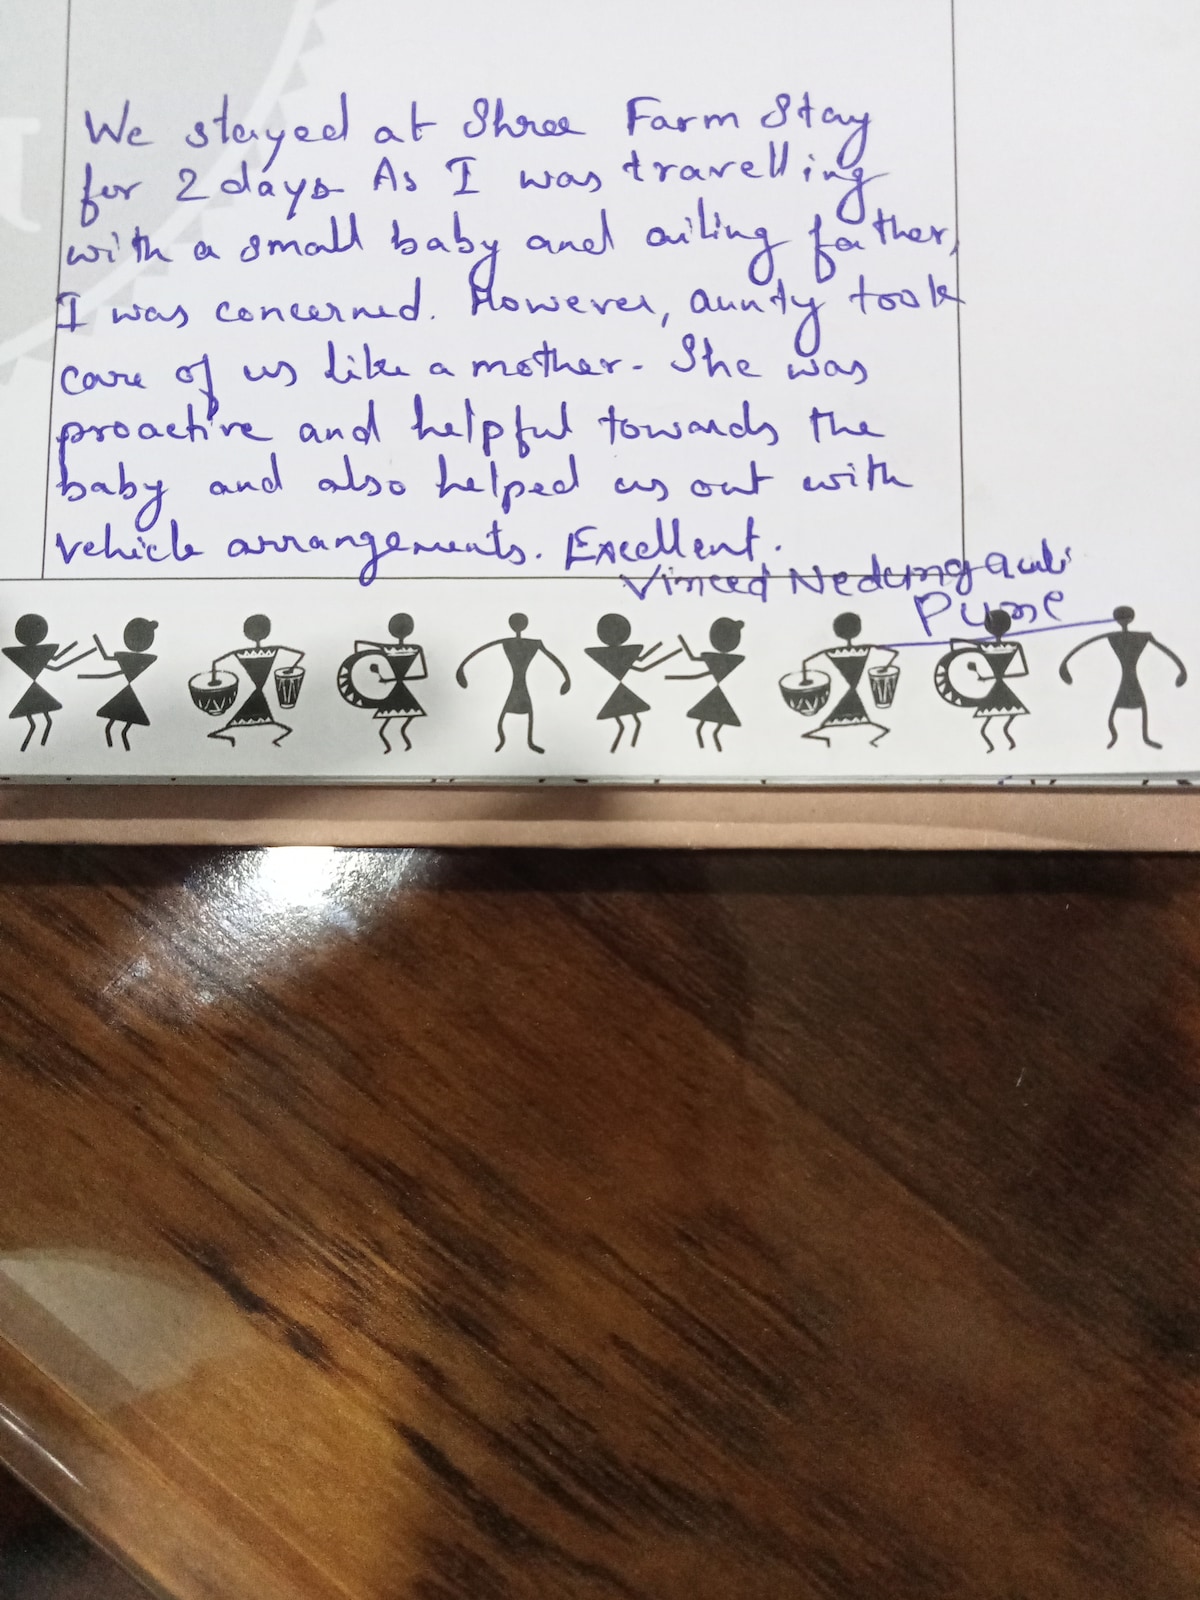 We stayed at Shree Farm Stay
for 2 days As I was travelling
with a small baby and ailing father,
I was concerned. However, aunty took
care of us like a mother. She was
proactive and helpful towards the
baby and also helped us out with
vehicle arrangements. Excellent.
Pune